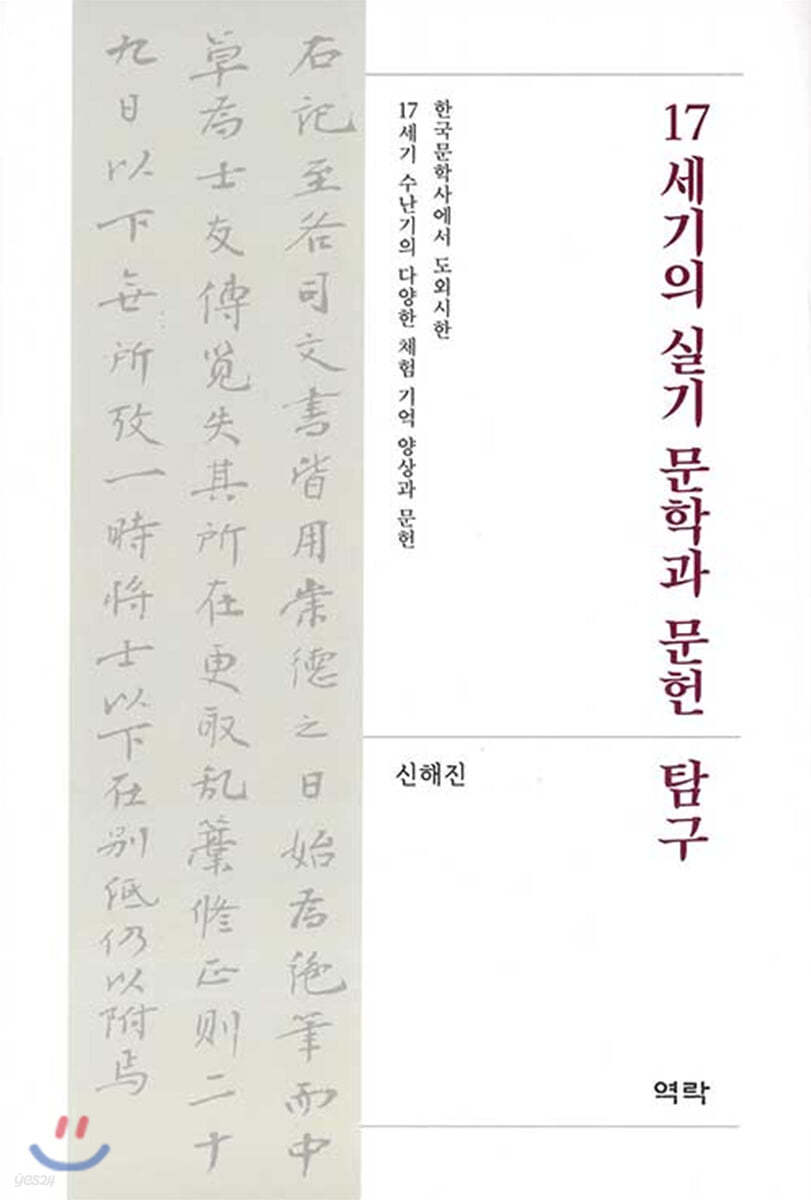 17세기의 실기 문학과 문헌 탐구
한국문학사에서 도외시한
17세기 수난기의 다양한 체험 기억 양상과 문헌
신해진
역락
右記至各司文書皆用崇德之日始爲絶筆而中
草爲士友傳覓失其所在更取乱藁修正則二十
九日以下無所攷一時將士以下在别低仍以附焉
yes24